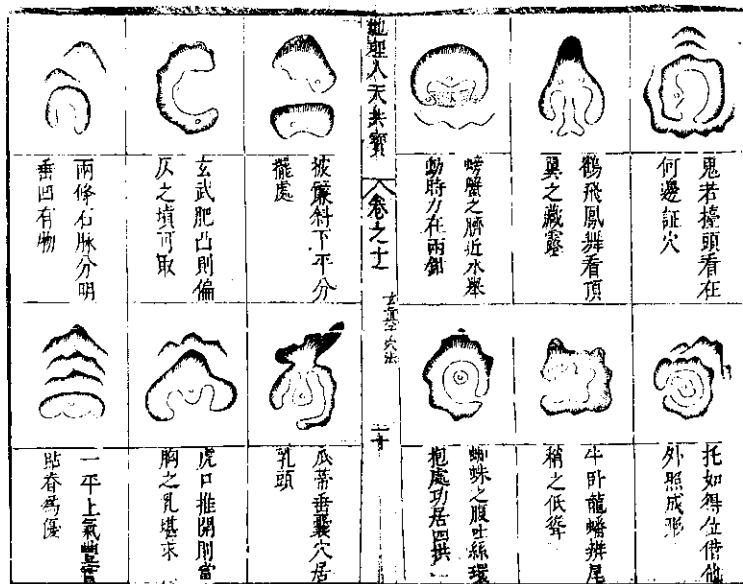 鬼若擡頭看在
何邊証穴
鶴飛鳳舞看頂
翼之藏露
螃蟹之臍近水舉
動時力在兩鉗
托如得位借他
外照成形
牛臥龍蟠辨尾
稍之低聳
蜘蛛之腹吐絲環
抱處功居四拱
地理人天共寶
卷之十
玄空穴法
十
披簾斜下平分
擺處
玄武肥凸則偏
仄之墳可取
兩條石脉分明
垂凹有物
瓜蒂垂囊穴居
乳頭
虎口推開則當
胸之乳堪求
一平上氣豐
貼脊為優